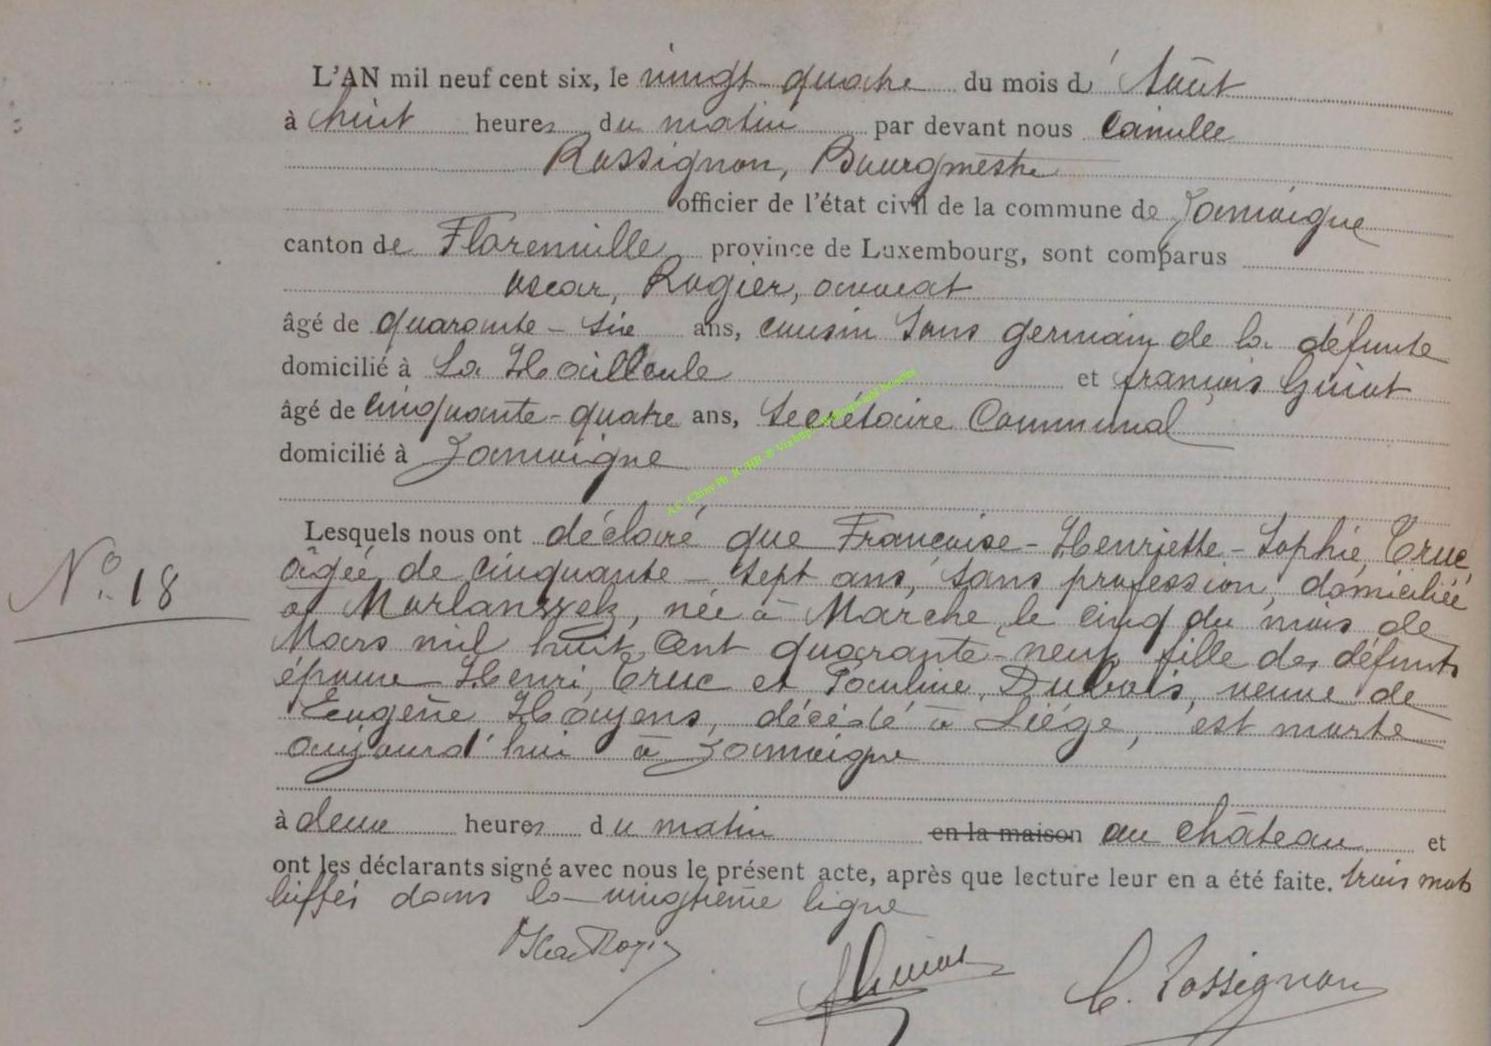 L'AN mil neuf cent six, le vingt-quatre du mois d'Août
à huit heures du matin par devant nous Camille
Rossignon, Bourgmestre
officier de l'état civil de la commune de Jamoigne
canton de Florenville province de Luxembourg, sont comparus
Oscar, Rogier, avocat
âgé de quarante-six ans, cousin sous germain de la défunte
domicilié à La et françois Guiot
âgé de cinquante-quatre ans, Secrétaire Communal
domicilié à Jamoigne
Lesquels nous ont déclaré que Françoise-Henriette-Sophie, Cruc,
âgée de cinquante-sept ans, sans profession, domiciliée
à Morlanwelz, née à Marche, le cinq du mois de
Mars mil huit cent quarante-neuf fille des défunts
époux Henri, Cruc et Pauline, Dubois, veuve de
Eugène Hoyens, décédé à Liége, est morte
aujourd'hui à Jamoigne
à deux heures du matin en la maison au château et
ont les déclarants signé avec nous le présent acte, après que lecture leur en a été faite. trois mots
biffés dans la vingtième ligne
N° 18
Guiot
C. Rossignon